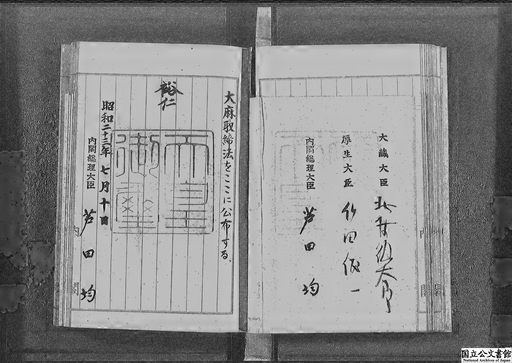 大藏大臣 北村徳太郎
厚生大臣 竹田儀一
内閣総理大臣 芦田均
大麻取締法をここに公布する。
裕仁
天皇御璽
昭和二十三年七月十日
内閣総理大臣 芦田均
国立公文書館
National Archives of Japan